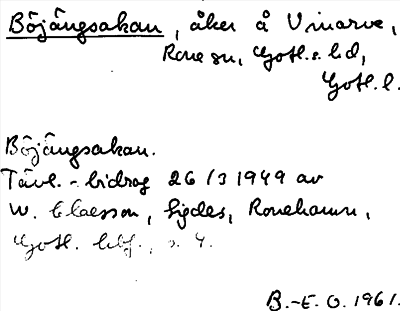 Böjängsakan, åker å Vinarve,
Rone sn, Gotl. s. hd,
Gotl. l.
Böjängsakan.
Tävl.-bidrag 26/3 1949 av
W. Claesson, Ejdes, Ronehamn,
Gotl. s. 4.
B.-E. O. 1961.